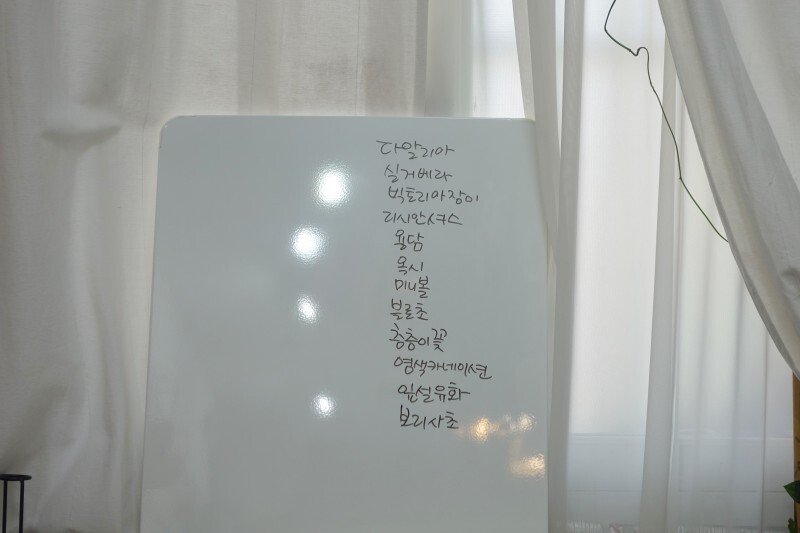 다알리아
실거베라
빅토리아장미
리시안셔스
용담
옥시
미니볼
블루초
층층이꽃
염색카네이션
잎설유화
보리사초